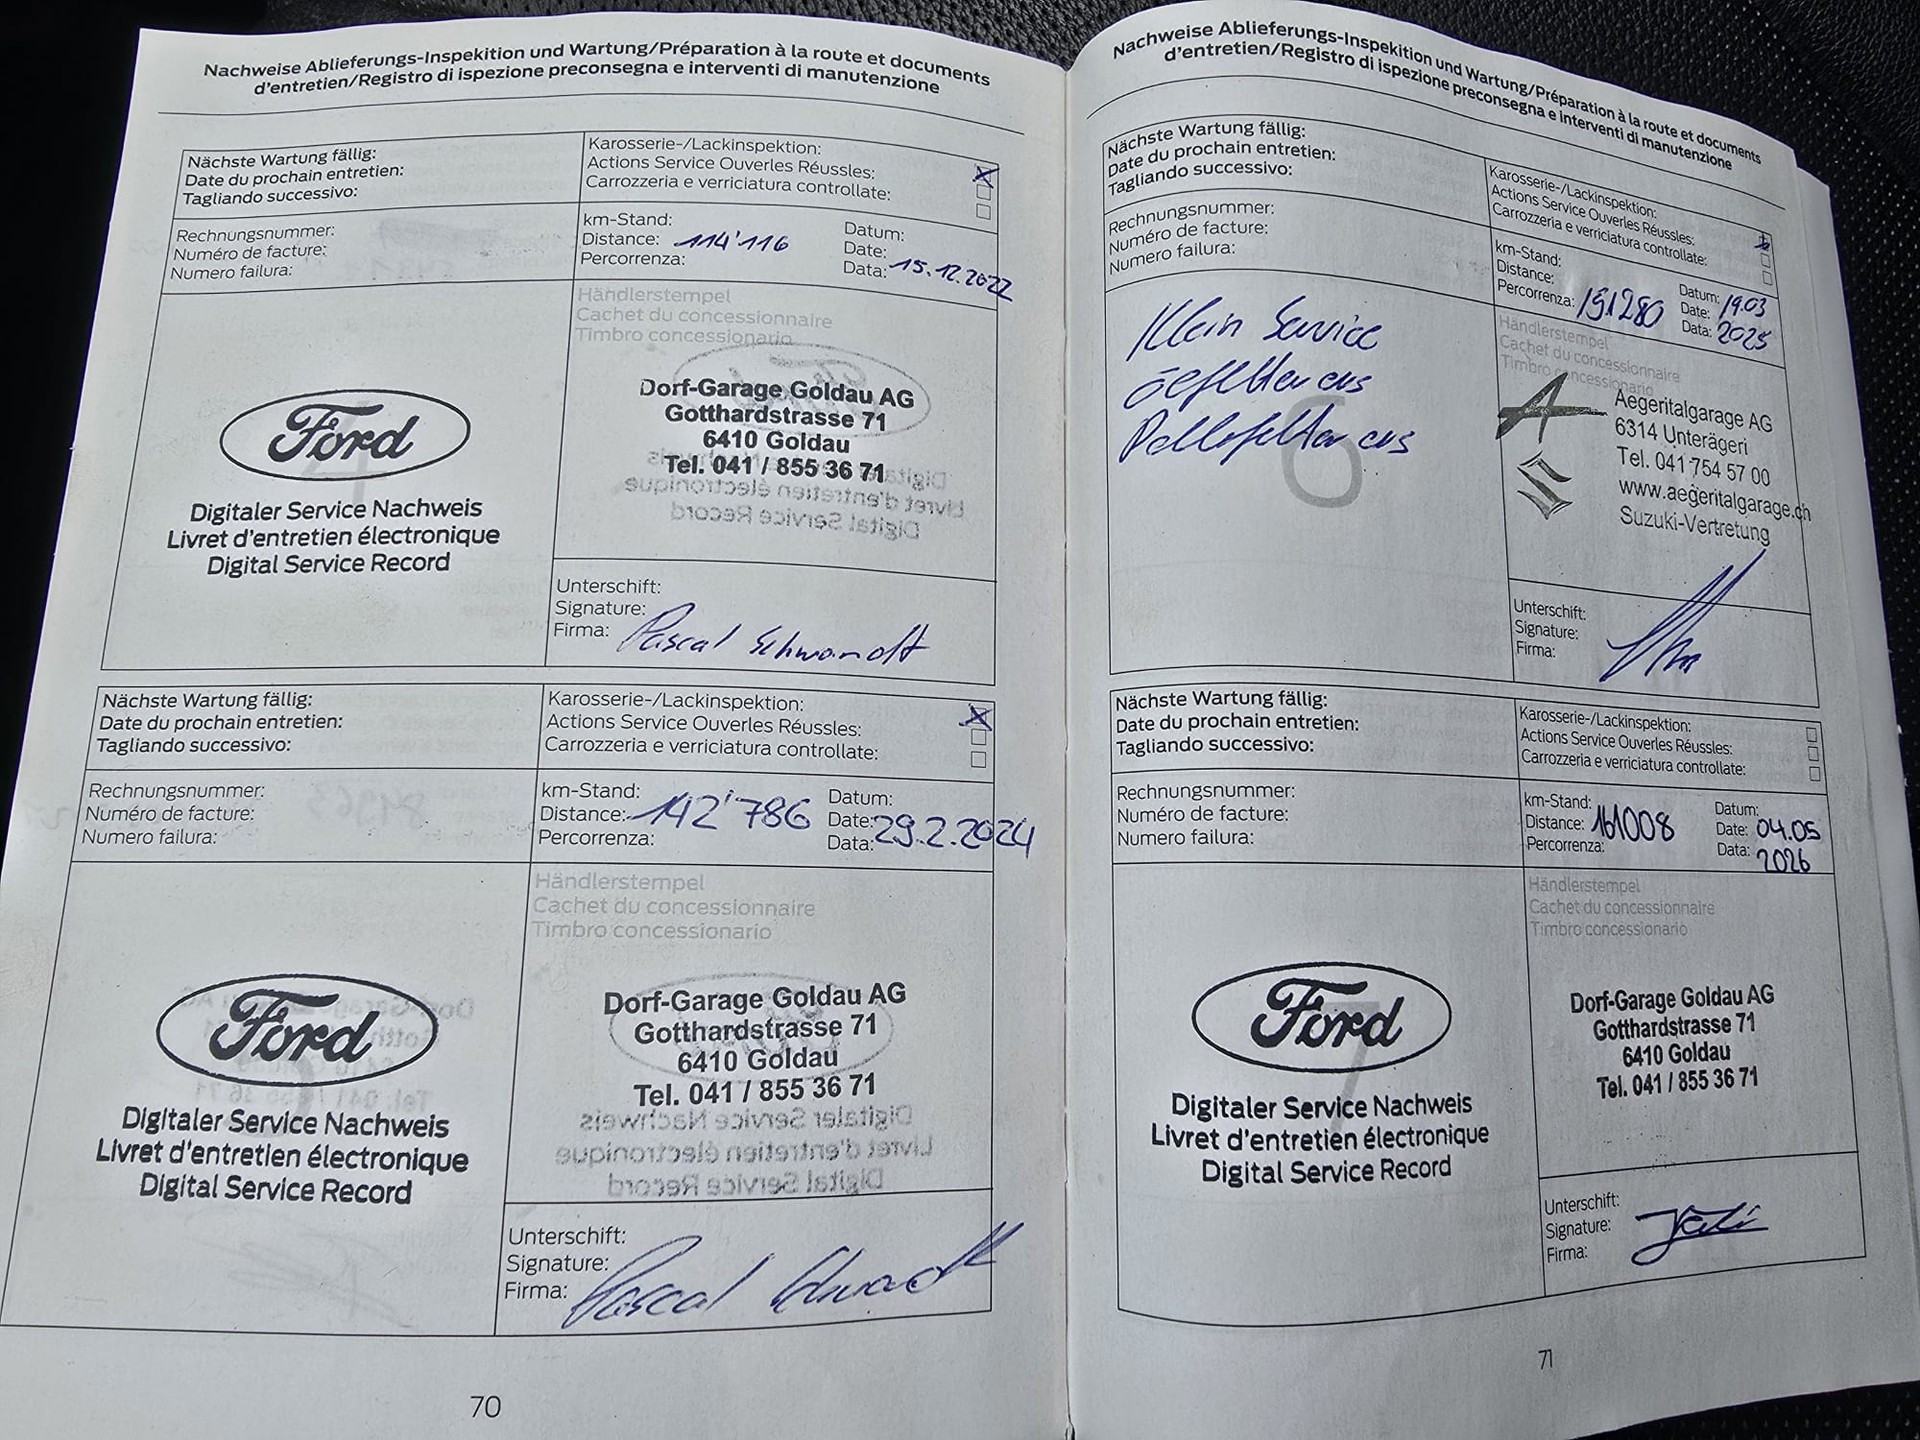 Nachweise Ablieferungs-Inspekition und Wartung/Préparation à la route et documents
d'entretien/Registro di ispezione preconsegna e interventi di manutenzione
Nächste Wartung fällig:
Date du prochain entretien:
Tagliando successivo:
Karosserie-/Lackinspektion:
Actions Service Ouverles Réussles:
Carrozzeria e verriciatura controllate:
Rechnungsnummer:
Numéro de facture:
Numero failura:
km-Stand:
Distance: 114'116
Percorrenza:
Datum:
Date:
Data: 15.12.2022
Ford
Digitaler Service Nachweis
Livret d'entretien électronique
Digital Service Record
Händlerstempel
Cachet du concessionnaire
Timbro concessionario
Dorf-Garage Goldau AG
Gotthardstrasse 71
6410 Goldau
Tel. 041 / 855 36 71
Unterschift:
Signature:
Firma: Pascal Schwandt
Nächste Wartung fällig:
Date du prochain entretien:
Tagliando successivo:
Karosserie-/Lackinspektion:
Actions Service Ouverles Réussles:
Carrozzeria e verriciatura controllate:
Rechnungsnummer:
Numéro de facture:
Numero failura:
km-Stand:
Distance: 142'786
Percorrenza:
Datum:
Date: 29.2.2024
Data:
Ford
Digitaler Service Nachweis
Livret d'entretien électronique
Digital Service Record
Händlerstempel
Cachet du concessionnaire
Timbro concessionario
Dorf-Garage Goldau AG
Gotthardstrasse 71
6410 Goldau
Tel. 041 / 855 36 71
Unterschift:
Signature:
Firma: Pascal Schwandt
70
Nachweise Ablieferungs-Inspekition und Wartung/Préparation à la route et documents
d'entretien/Registro di ispezione preconsegna e interventi di manutenzione
Nächste Wartung fällig:
Date du prochain entretien:
Tagliando successivo:
Karosserie-/Lackinspektion:
Actions Service Ouverles Réussles:
Carrozzeria e verriciatura controllate:
Rechnungsnummer:
Numéro de facture:
Numero failura:
km-Stand:
Distance:
Percorrenza: 151280
Datum: 19.03
Date:
Data: 2025
Klein Service
Oelfilter ers
Pollefilter ers
6
Händlerstempel
Cachet du concessionnaire
Timbro concessionario
Aegeritalgarage AG
6314 Unterägeri
Tel. 041 754 57 00
www.aegeritalgarage.ch
Suzuki-Vertretung
Unterschift:
Signature:
Firma:
Nächste Wartung fällig:
Date du prochain entretien:
Tagliando successivo:
Karosserie-/Lackinspektion:
Actions Service Ouverles Réussles:
Carrozzeria e verriciatura controllate:
Rechnungsnummer:
Numéro de facture:
Numero failura:
km-Stand:
Distance: 161008
Percorrenza:
Datum:
Date: 04.05
Data: 2026
7
Ford
Digitaler Service Nachweis
Livret d'entretien électronique
Digital Service Record
Händlerstempel
Cachet du concessionnaire
Timbro concessionario
Dorf-Garage Goldau AG
Gotthardstrasse 71
6410 Goldau
Tel. 041 / 855 36 71
Unterschift:
Signature:
Firma:
71